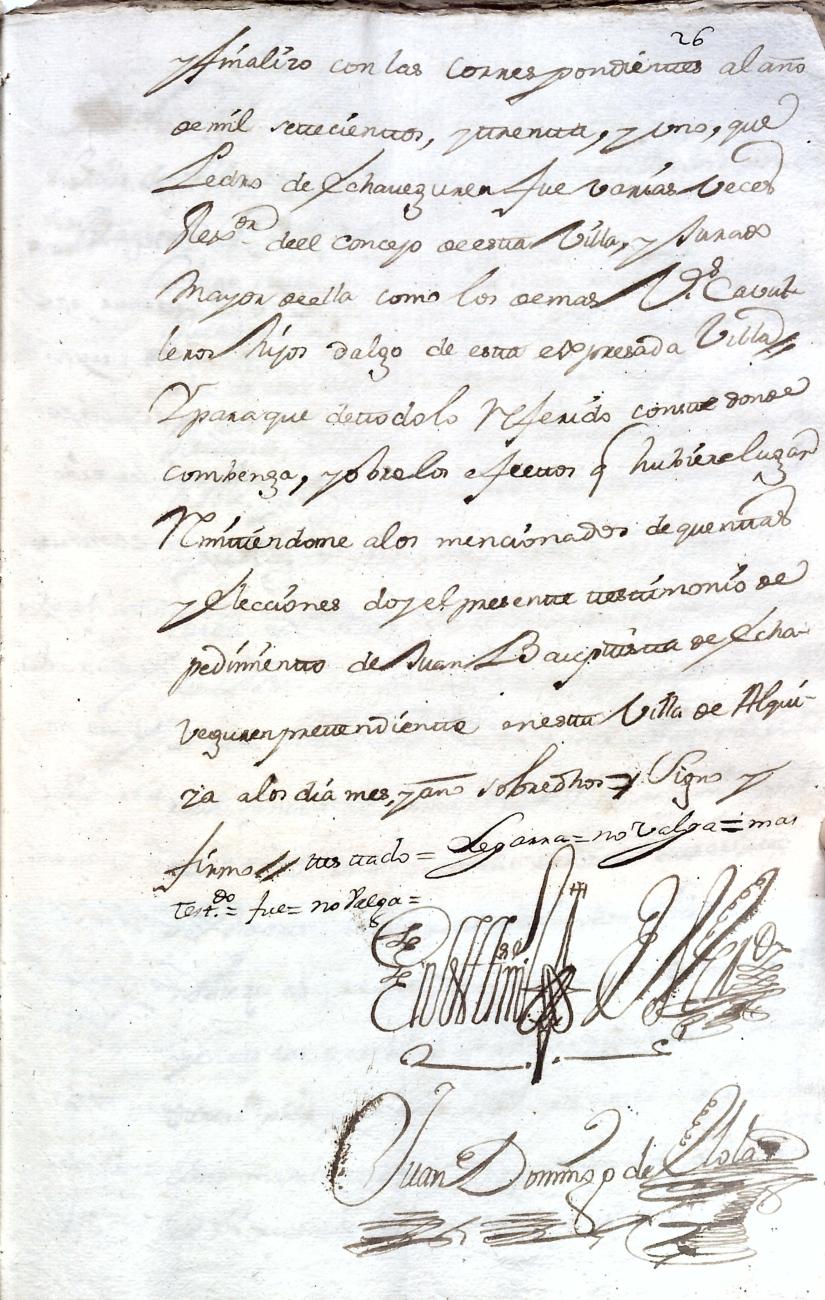 26
y finalizo con las correspondientes al año
de mil settecienttos, y ttrentta, y uno, que
Pedro de Echaveguren fue varias veces
Rex.or deel Concejo de esta Villa, y Jurado
mayor de ella como los demas V.s Caval-
leros hijos dalgo de esta expresada Villa
Y para que de ttodo lo Referido constte donde
combenga, y sobre los efecttos q hubiere lugar
Remittiendome a los mencionados de quenttas
y Elecciones doy el presentte ttesttimonio de
pedimientto de Juan Baupttistta de Echa-
veguren prettendientte en estta Villa de Alqui-
za a los dia mes, y año sobredhos = y Signo y
firmo // ttesttado = Legarra = no valga = mas
Test.do = fue = no valga =
En testim
Juan Domingo de